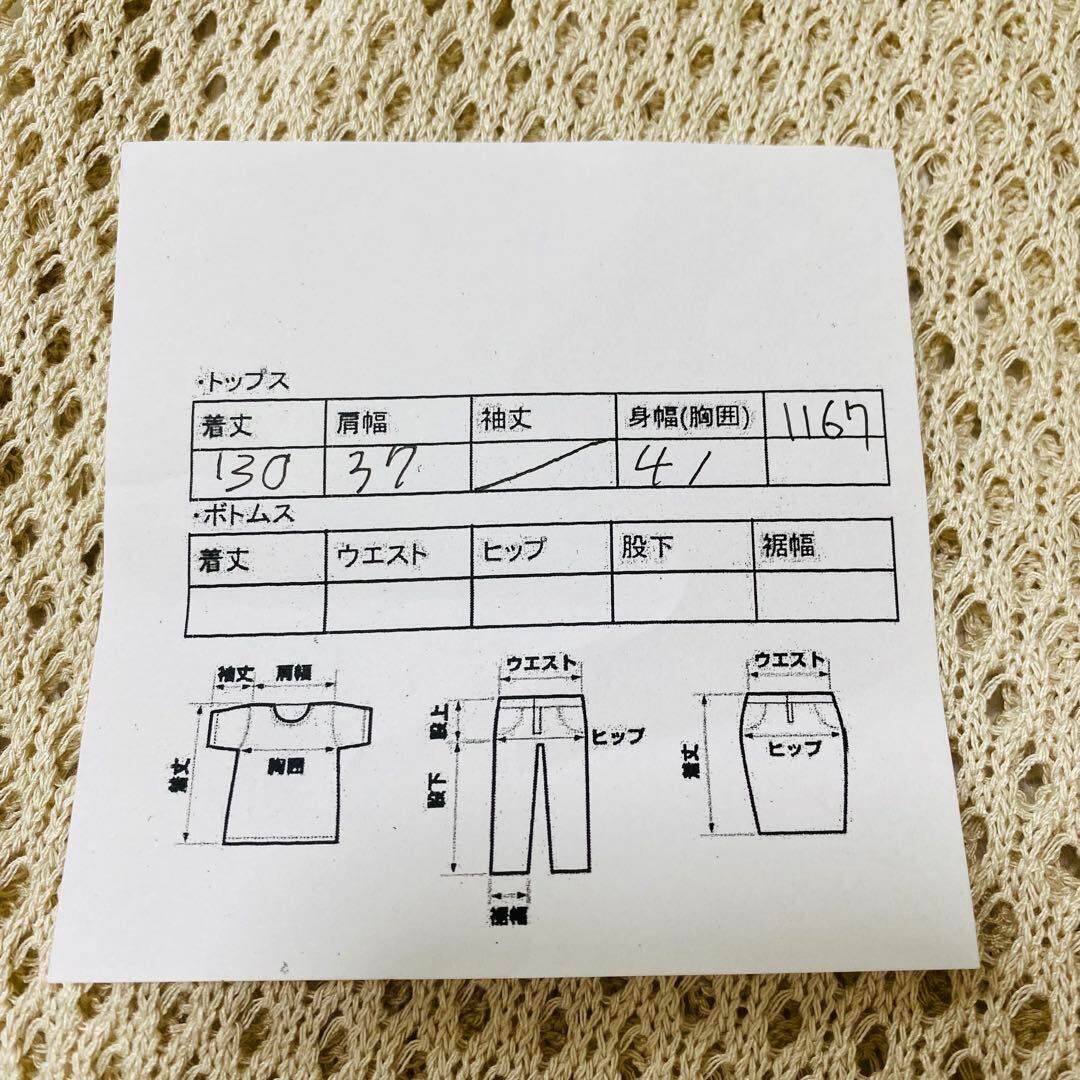 ・トップス
着丈 肩幅 袖丈 身幅(胸囲) 1167
130 37 / 41
・ボトムス
着丈 ウエスト ヒップ 股下 裾幅
袖丈 肩幅
着丈
胸囲
ウエスト
股上
ヒップ
股下
裾幅
ウエスト
ヒップ
着丈